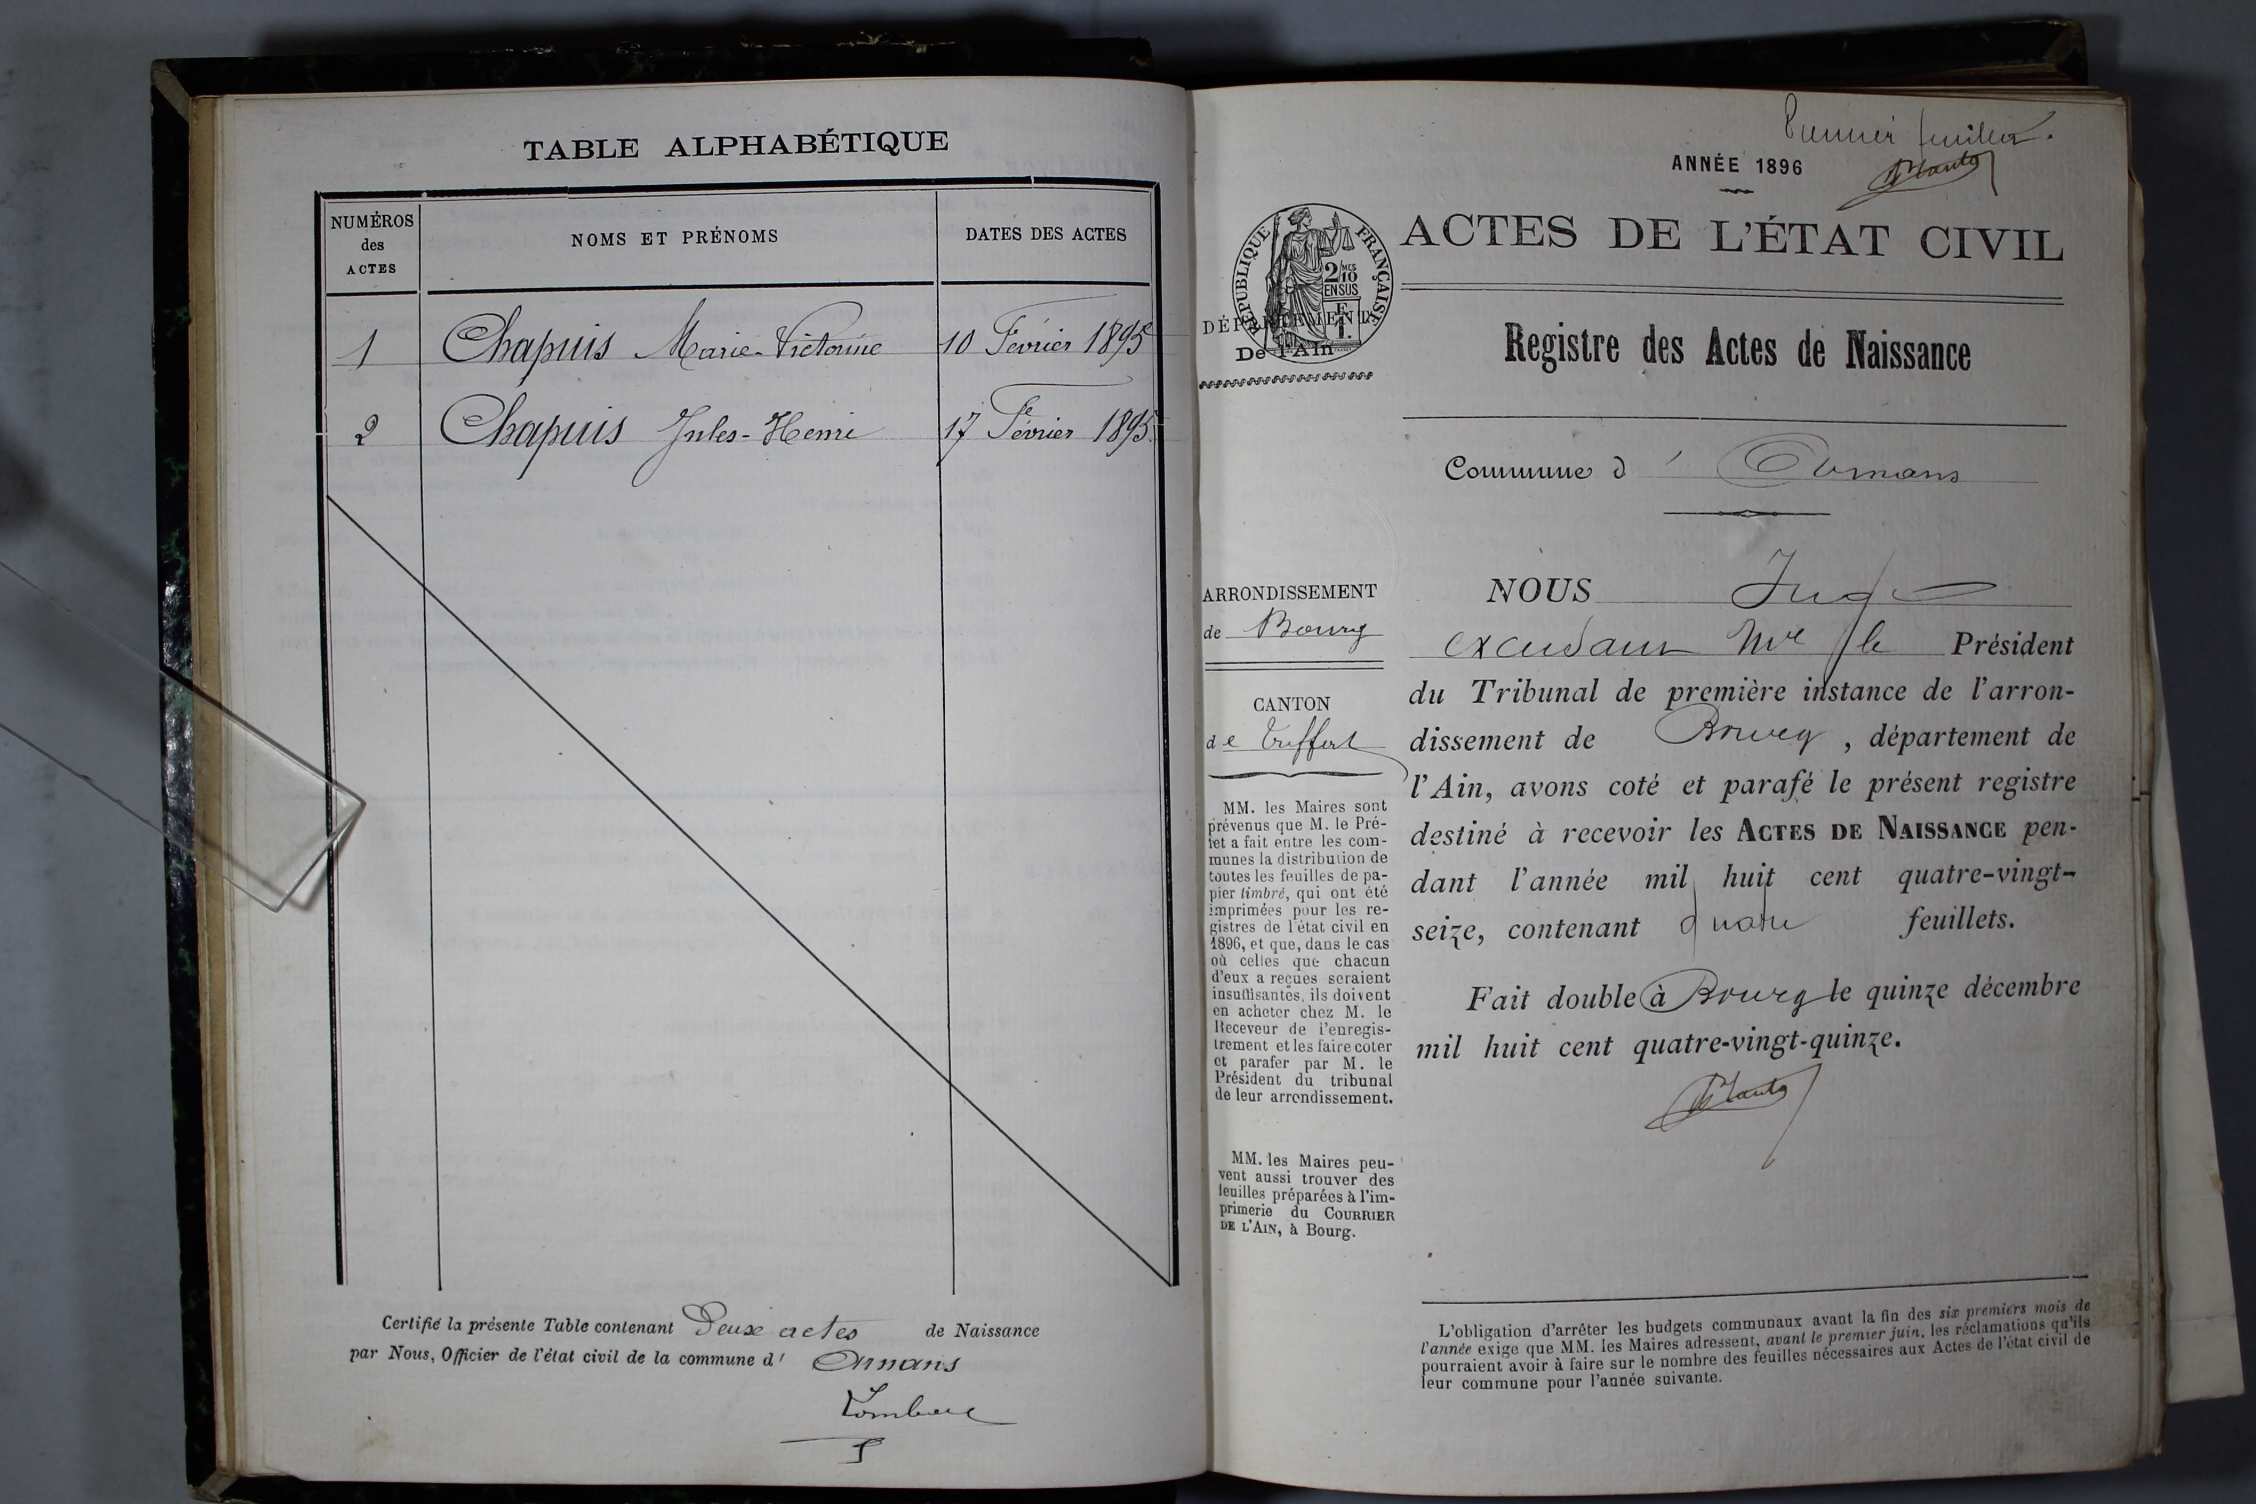 TABLE ALPHABÉTIQUE
NUMÉROS
des
ACTES
NOMS ET PRÉNOMS
DATES DES ACTES
1 Chapuis Marie-Victorine 10 Février 1895
2 Chapuis Jules-Henri 17 Février 1895
Certifié la présente Table contenant Deux actes de Naissance
par Nous, Officier de l'état civil de la commune d'
Premier feuillet.
ANNÉE 1896
RÉPUBLIQUE FRANÇAISE
2/10 MES
EN SUS
DÉPARTEMENT
De l'Ain
ACTES DE L'ÉTAT CIVIL
Registre des Actes de Naissance
Commune d'
ARRONDISSEMENT
de Bourg
CANTON
de Treffort
MM. les Maires sont
prévenus que M. le Pré-
fet a fait entre les com-
munes la distribution de
toutes les feuilles de pa-
pier timbré, qui ont été
imprimées pour les re-
gistres de l'état civil en
1896, et que, dans le cas
où celles que chacun
d'eux a reçues seraient
insuffisantes, ils doivent
en acheter chez M. le
Receveur de l'enregis-
trement et les faire coter
et parafer par M. le
Président du tribunal
de leur arrondissement.
MM. les Maires peu-
vent aussi trouver des
feuilles préparées à l'im-
primerie du COURRIER
DE L'AIN, à Bourg.
NOUS Juge
le Président
du Tribunal de première instance de l'arron-
dissement de Bourg, département de
l'Ain, avons coté et parafé le présent registre
destiné à recevoir les ACTES DE NAISSANCE pen-
dant l'année mil huit cent quatre-vingt-
seize, contenant quatre feuillets.
Fait double à Bourg le quinze décembre
mil huit cent quatre-vingt-quinze.
L'obligation d'arrêter les budgets communaux avant la fin des six premiers mois de
l'année exige que MM. les Maires adressent, avant le premier juin, les réclamations qu'ils
pourraient avoir à faire sur le nombre des feuilles nécessaires aux Actes de l'état civil de
leur commune pour l'année suivante.